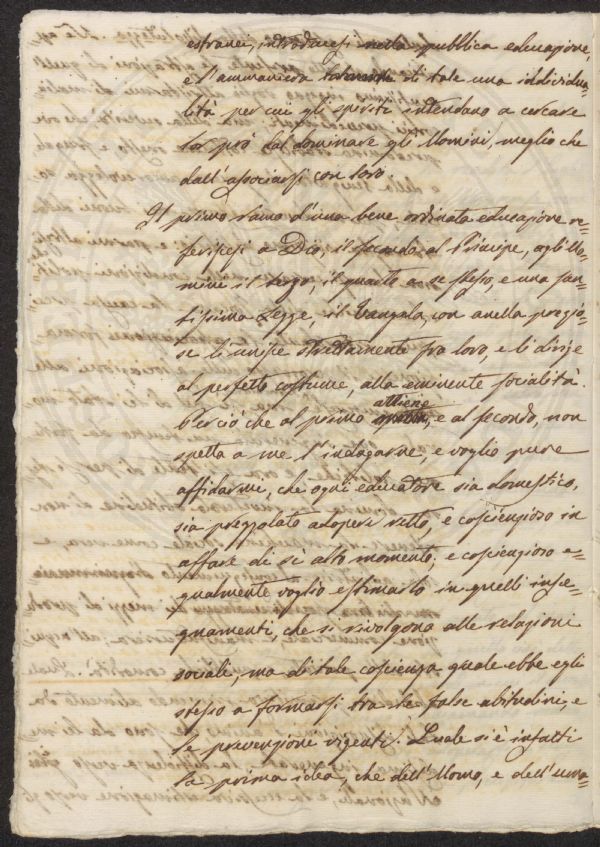 estranei, introducesi nella pubblica educazione,
e l'ammaniera talmente di tale una individua=
lità per cui gli spiriti intendano a cercare
lor prò dal dominare gli Uomini, meglio che
dall'associarsi con loro.
Il primo ramo d'una bene ordinata educazione re=
ferissesi a Dio, il secondo al Principe, agli Uo=
mini il terzo, il quarto a se stesso, e una san=
tissima Legge, il Vangelo, con anella prezio=
se li unisce strettamente fra loro, e li dirige
al perfetto costume, alla eminente socialità.
Perciò che al primo attiene, e al secondo, non
spetta a me l'indagarne, e voglio pure
affidarmi, che ogni educatore sia domestico,
sia prezzolato adoperi retto, e coscienzioso in
affare di sì alto momento; e coscienzioso e=
gualmente voglio estimarlo in quelli inse=
gnamenti, che si rivolgono alle relazioni
sociali, ma di tale coscienza quale ebbe egli
stesso a formarsi tra le false abitudini, e
le prevenzione vigenti. Quale si è infatti
la prima idea, che dell'Uomo, e dell'uma=